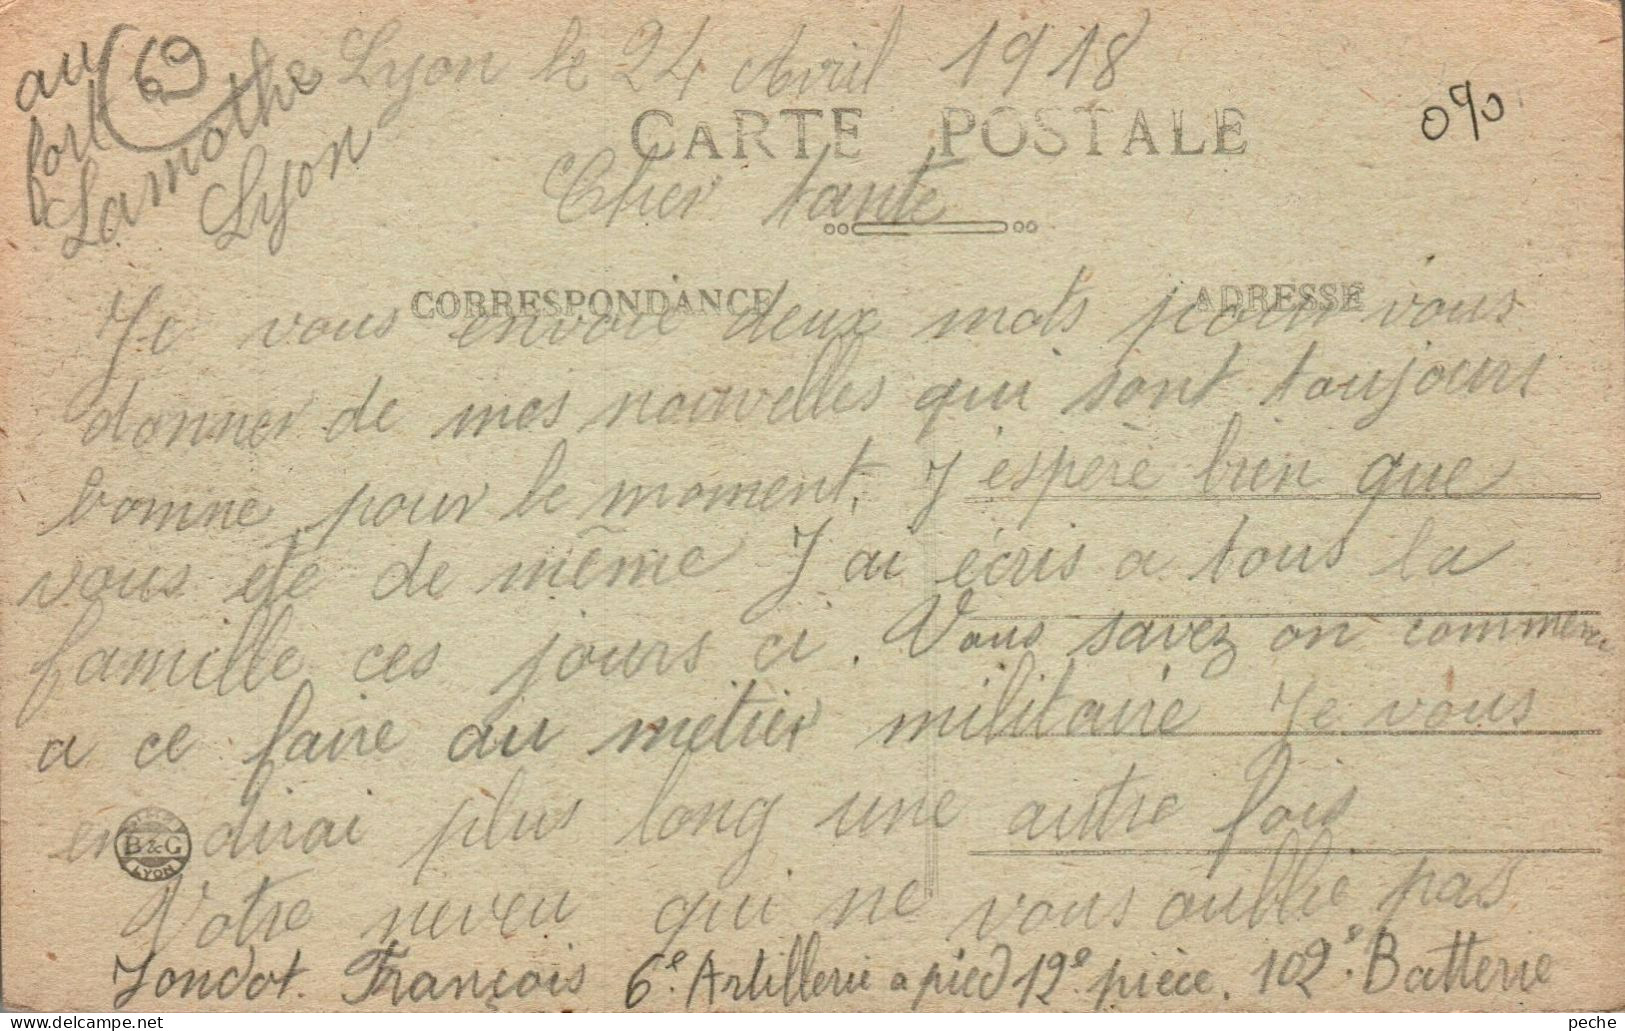 au
fort
Lamothe
Lyon
69
Lyon le 24 Avril 1918
CARTE POSTALE
Cher tante
CORRESPONDANCE
ADRESSE
Je vous envoie deux mots pour vous
donner de mes nouvelles qui sont toujours
bonne pour le moment. J'espère bien que
vous ete de même J'ai écris a tous la
famille ces jours ci. Vous savez on commence
a ce faire au métier militaire Je vous
en dirai plus long une autre fois
B&G
LYON
Votre neveu qui ne vous oublie pas
François 6e Artillerie a pied 12e pièce. 102e Batterie
peche